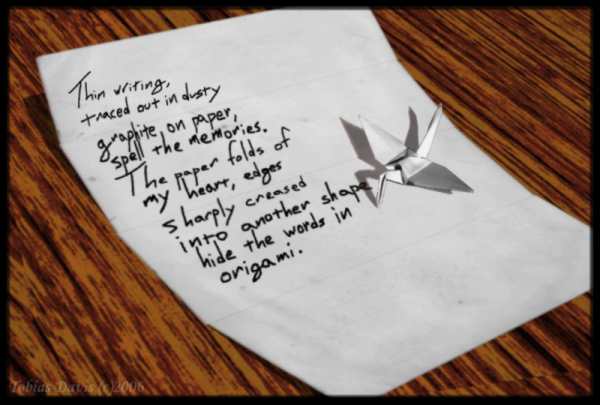 Thin writing,
traced out in dusty
graphite on paper,
spell the memories.
The paper folds of
my heart, edges
sharply creased
into another shape
hide the words in
origami.
Tobias Davis (c)2006